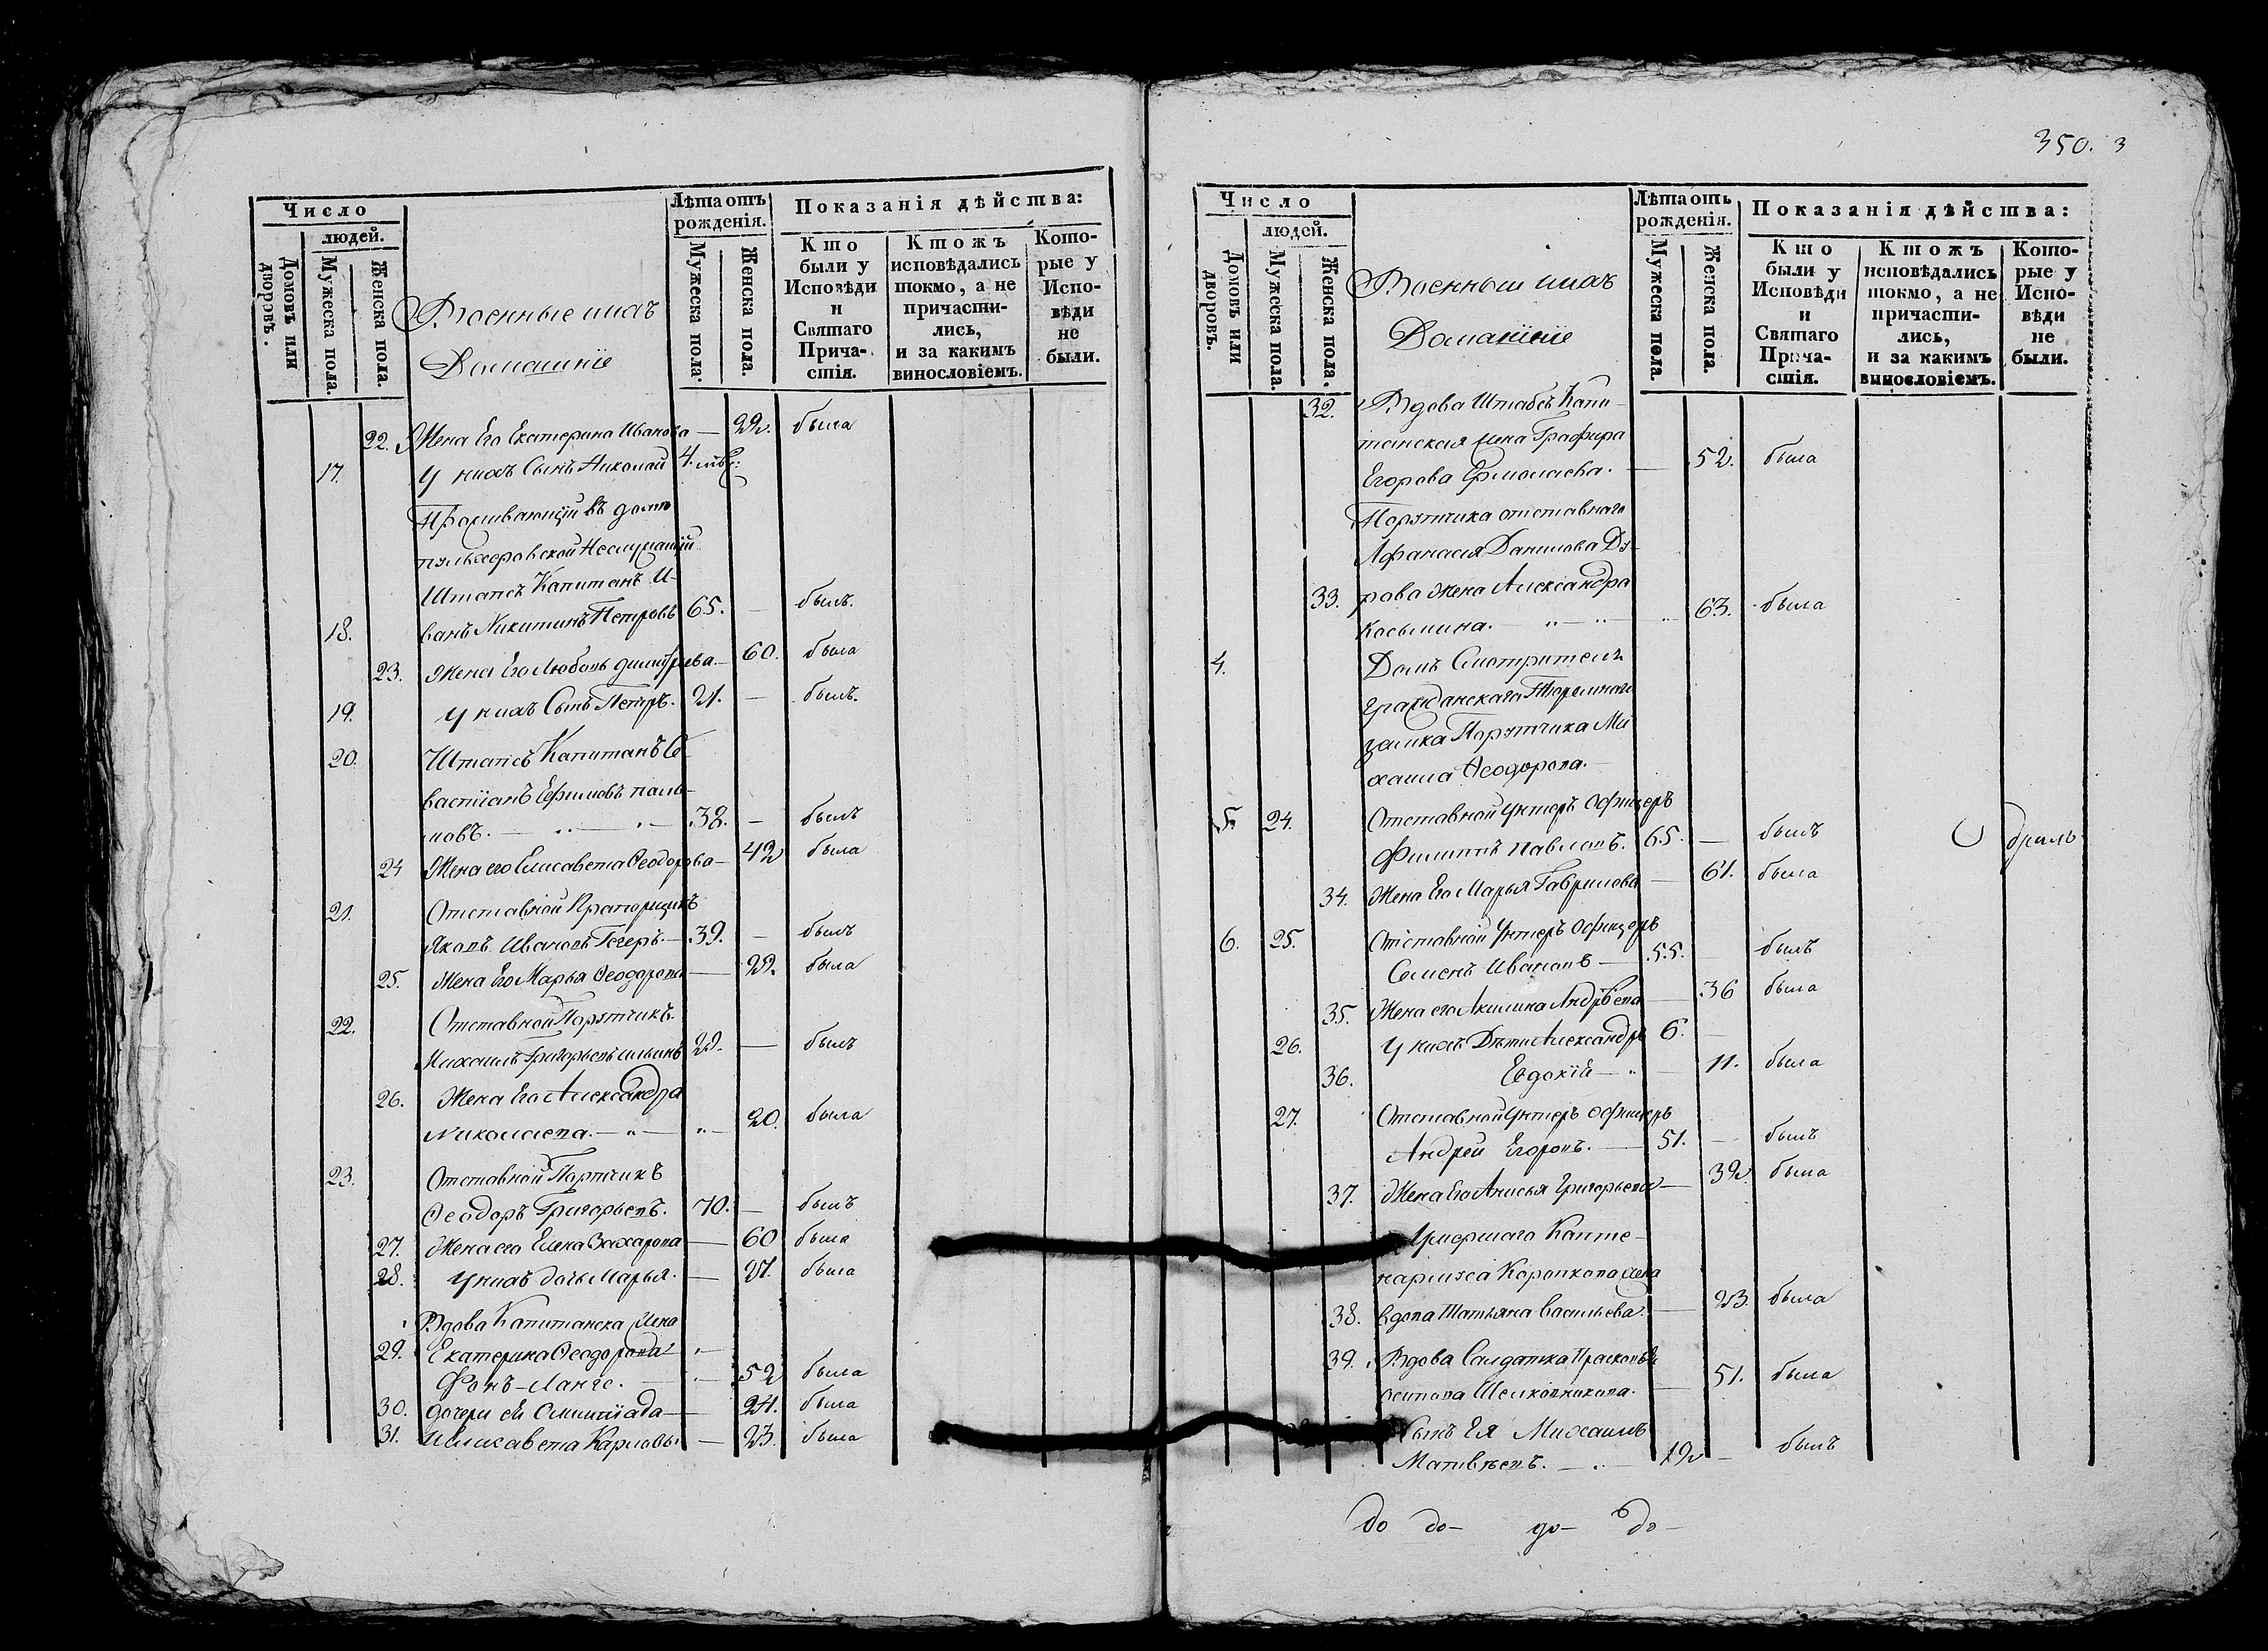 Число
людей.
Домовъ или дворовъ.
Мужеска пола.
Женска пола.
Военные ихъ
Домашніе
Лѣта отъ рожденія.
Мужеска пола.
Женска пола.
Показанія дѣйства:
Кто были у Исповѣди и Святаго Причастія.
Ктожъ исповѣдались токмо, а не причастились, и за какимъ винословіемъ.
Которые у Исповѣди не были.
22. Жена Его Екатерина Иванова — 22. была
17. У нихъ Сынъ Николай 4. мѣс:
Проживающіи въ домѣ
Неслужащіи
Штапсъ Капитанъ И-
18. ванъ Никитинъ Петровъ 65. — былъ.
23. Жена Его Любовь Димитріева — 60. была
19. У нихъ Сынъ Петръ. 21. — былъ.
20. Штапсъ Капитанъ Се-
вастіанъ Ефимовъ
новъ. — 38. — былъ
24 Жена его Елисавета Ѳеодорова — 42 была
21. Отставной Прапорщикъ
Яковъ Ивановъ Гегеръ. — 39. — былъ
25. Жена Его Марья Ѳеодорова — 22. была
22. Отставной Порутчикъ
Михаилъ Григорьевъ Ильинъ 29. — былъ
26. Жена Его Александра
Николаева. — „ — „ — 20. была
23. Отставной Портчикъ
Ѳеодоръ Григорьевъ. 70. — былъ
27. Жена его Елена Захарова — 60 была
28. У нихъ дочь Марья. — 27. была
Вдова Капитанска жена
29. Екатерина Ѳеодорова
Фонъ-Ланге. — 52 была
30. дочери ея Олимпіада — 24. была
31. Елисавета Карловы — 23. была
350. 3
Число
людей.
Домовъ или дворовъ.
Мужеска пола.
Женска пола.
Военныи ихъ
Домашніе
Лѣта отъ рожденія.
Мужеска пола.
Женска пола.
Показанія дѣйства:
Кто были у Исповѣди и Святаго Причастія.
Ктожъ исповѣдались токмо, а не причастились, и за какимъ винословіемъ.
Которые у Исповѣди не были.
32. Вдова Штабсъ Капи-
танская жена Графира
Егорова Ермолаева. — 52. была
Порутчика отставнаго
Афанасія Данилова Ду-
33. рова жена Александра
Косьмина. — „ — „ — „ 63. была
4. Домъ Смотрителя
гражданскаго Тюремнаго
замка Порутчика Ми
хаила Ѳеодорова. —
5. 24. Отставной Унтеръ Офицеръ
Филиппъ Павловъ. 65. — былъ
34. Жена Его Марья Гаврилова — 61. была
6. 25. Отставной Унтеръ Офицеръ
Семенъ Ивановъ — 55. былъ
35. Жена его Акилина Андрѣева — 36 была
26. У нихъ Дѣти Александръ 6. —
36. Евдокія — „ — 11. была
27. Отставной Унтеръ Офицеръ
Андрей Егоровъ. — 51. — былъ
37. Жена Его Анисья Григорьева — 32 была
Умершаго Капте-
нармуса Коровкова жена
38. вдова Татьяна Васильева. — 23. была
39. Вдова Салдатка Прасковья
Осипова Шелковникова. — 51. была
Сынъ Ея Михаилъ
Матвѣевъ. — 12 — былъ
до до — до — до —